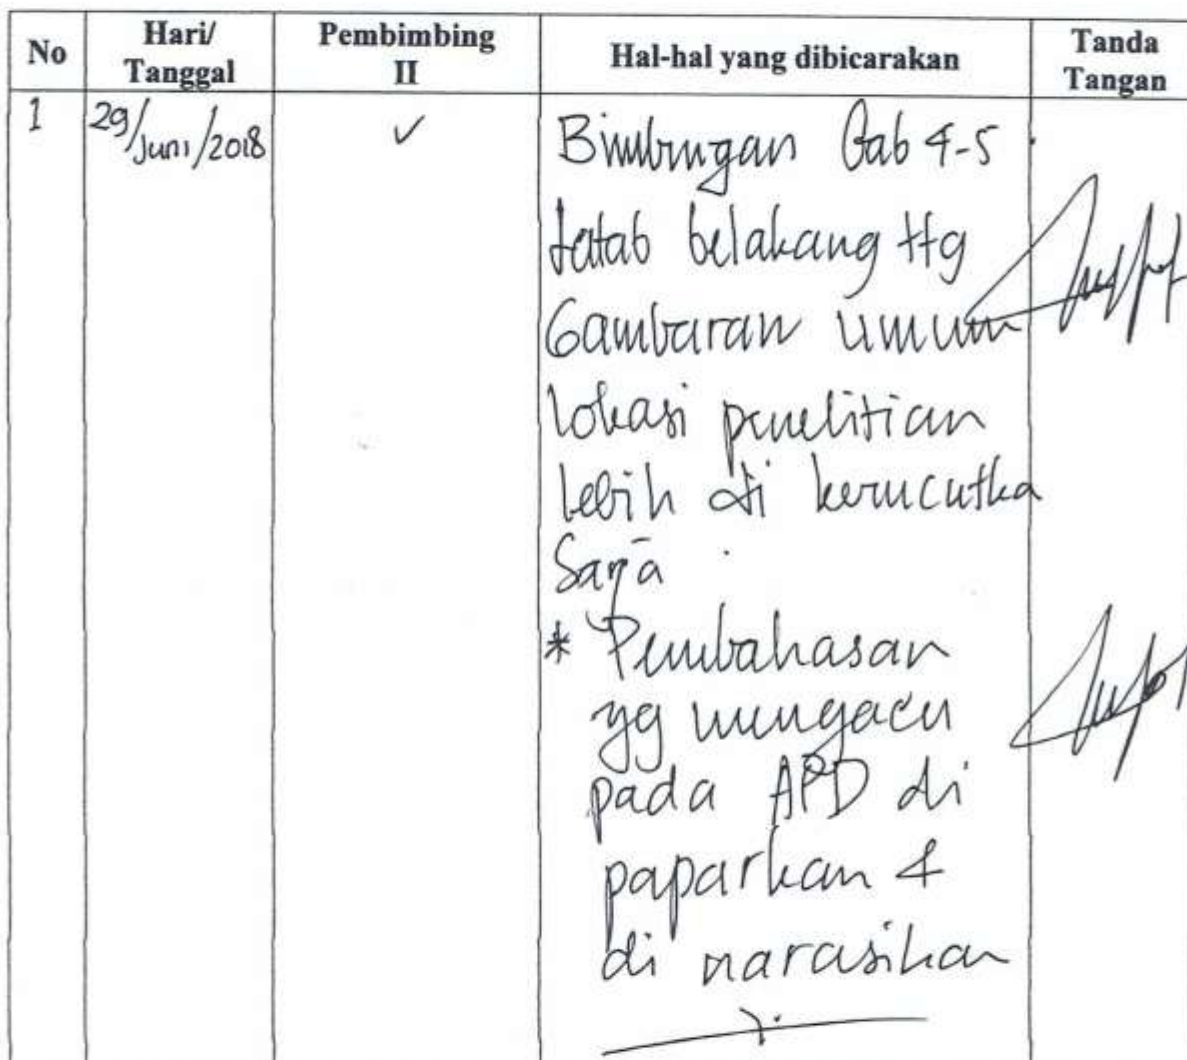 No Hari/ Tanggal Pembimbing II Hal-hal yang dibicarakan Tanda Tangan
1 29/Juni/2018 ✓ Bimbingan Bab 4-5
belakang ttg
Gambaran umum
lokasi penelitian
lebih di kerucutka
Saja
* Pembahasan
yg mengacu
pada APD di
paparkan &
di narasikan